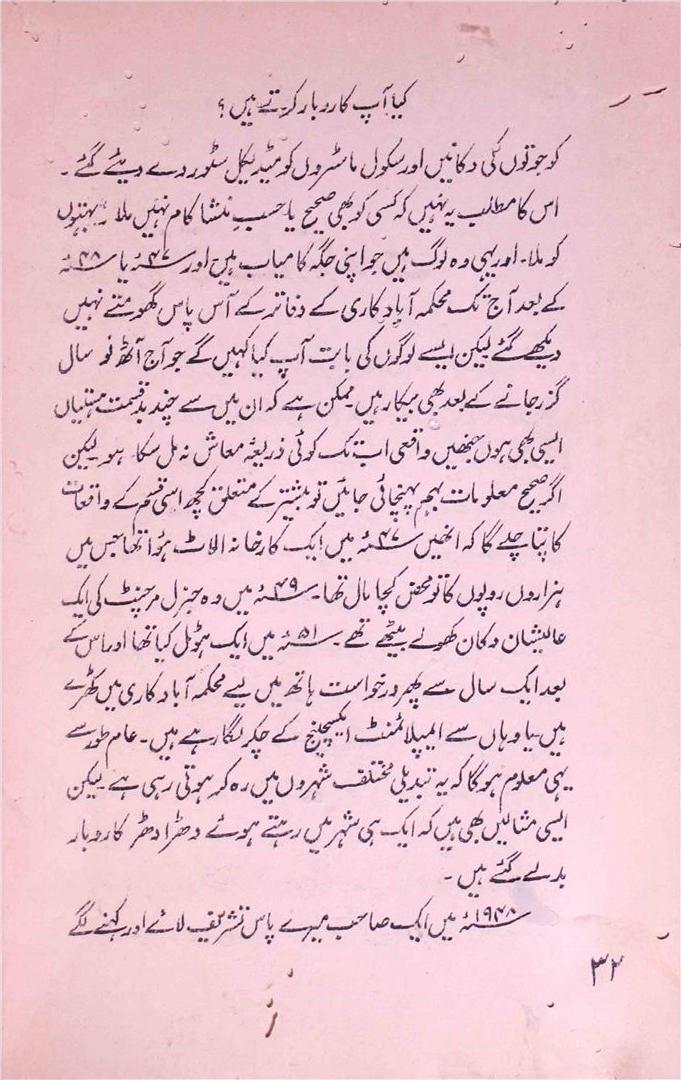 کیا آپ کاروبار کرتے ہیں؟
کو جوتوں کی دکانیں اور سکول ماسٹروں کو میڈیکل سٹور دے دیئے گئے ۔
اس کا مطلب یہ نہیں کہ کسی کو بھی صحیح یا حسبِ منشا کام نہیں ملا ۔ بہتوں
کو ملا۔ اور یہی وہ لوگ ہیں جو اپنی جگہ کامیاب ہیں اور ۴۷ء یا ۴۸ء
کے بعد آج تک محکمہ آبادکاری کے دفاتر کے آس پاس گھومتے نہیں
دیکھے گئے لیکن ایسے لوگوں کی بابت آپ کیا کہیں گے جو آج آٹھ نو سال
گزر جانے کے بعد بھی بیکار ہیں۔ ممکن ہے کہ ان میں سے چند بدقسمت ہستیاں
ایسی بھی ہوں جنھیں واقعی اب تک کوئی ذریعۂ معاش نہ مل سکا ہو۔ لیکن
اگر صحیح معلومات بہم پہنچائی جائیں تو بیشتر کے متعلق کچھ اسی قسم کے واقعات
کا پتا چلے گا کہ انھیں ۴۷ء میں ایک کارخانہ الاٹ ہؤا تھا جس میں
ہزاروں روپوں کا تو محض کچا مال تھا۔ ۴۹ء میں وہ جنرل مرچنٹ کی ایک
عالیشان دکان کھولے بیٹھے تھے ۔ ۵۱ء میں ایک ہوٹل کیا تھا اور اس کے
بعد ایک سال سے پھر درخواست ہاتھ میں لیے محکمہ آبادکاری میں کھڑے
ہیں۔ یا وہاں سے ایمپلائمنٹ ایکسچینج کے چکر لگا رہے ہیں۔ عام طور سے
یہی معلوم ہوگا کہ یہ تبدیلی مختلف شہروں میں رہ کر ہوتی رہی ہے۔ لیکن
ایسی مثالیں بھی ہیں کہ ایک ہی شہر میں رہتے ہوئے دھڑا دھڑ کاروبار
بدلے گئے ہیں ۔
۱۹۴۸ء میں ایک صاحب میرے پاس تشریف لائے اور کہنے لگے
۳۲